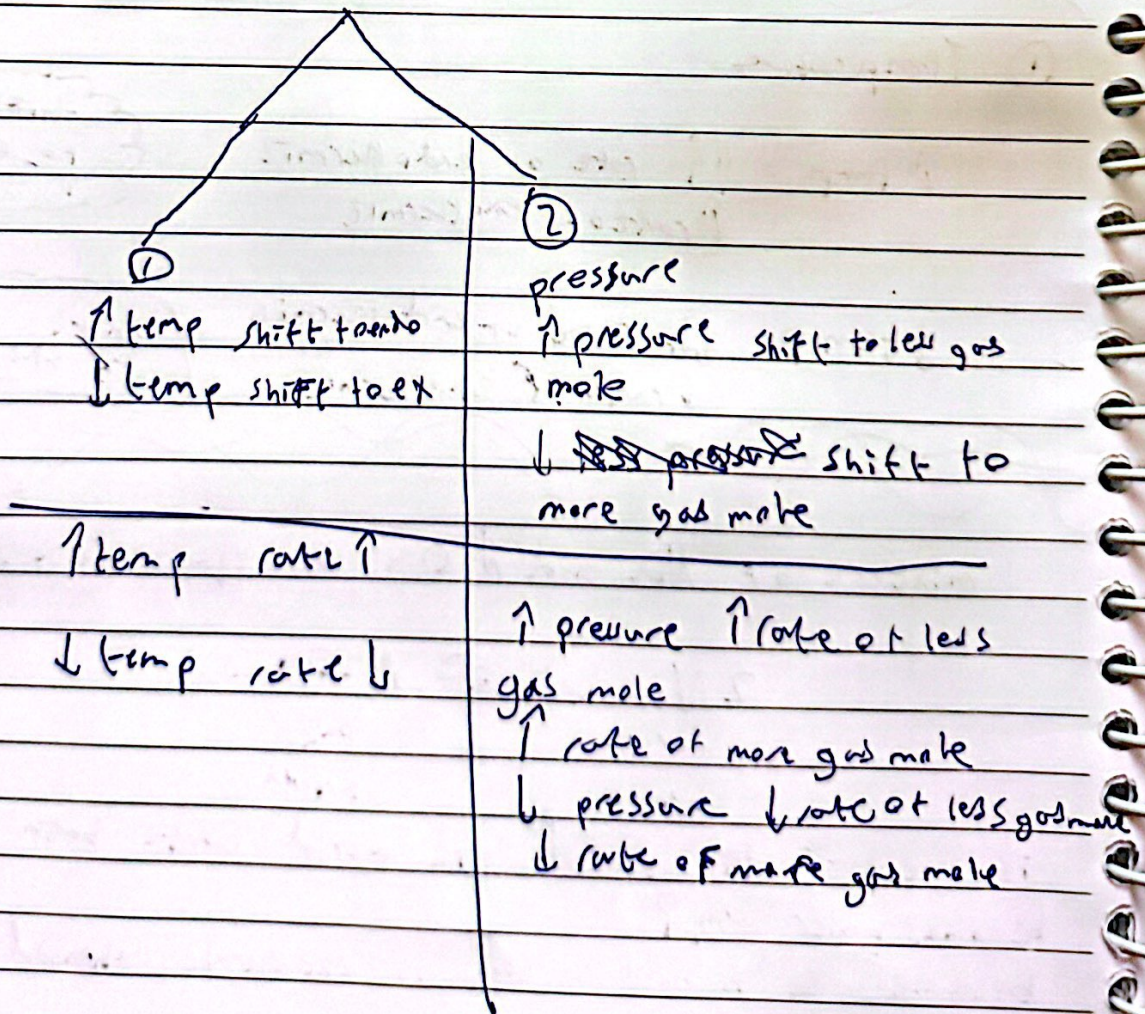 ①
↑ temp shift to endo
↓ temp shift to ex
②
pressure
↑ pressure shift to less gas
mole
↓ shift to
more gas mole
↑ temp rate ↑
↓ temp rate ↓
↑ pressure ↑ rate of less
gas mole
↑ rate of more gas mole
↓ pressure ↓ rate of less gas mole
↓ rate of more gas mole